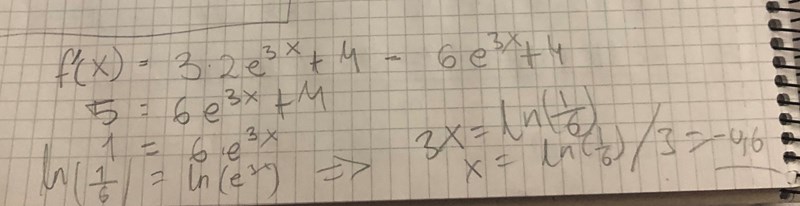 f'(x) = 3·2e^{3x} + 4 = 6e^{3x} + 4
5 = 6e^{3x} + 4
1 = 6·e^{3x}
ln(1/6) = ln(e^{3x}) => 3x = ln(1/6)
x = ln(1/6)/3 = -0,6